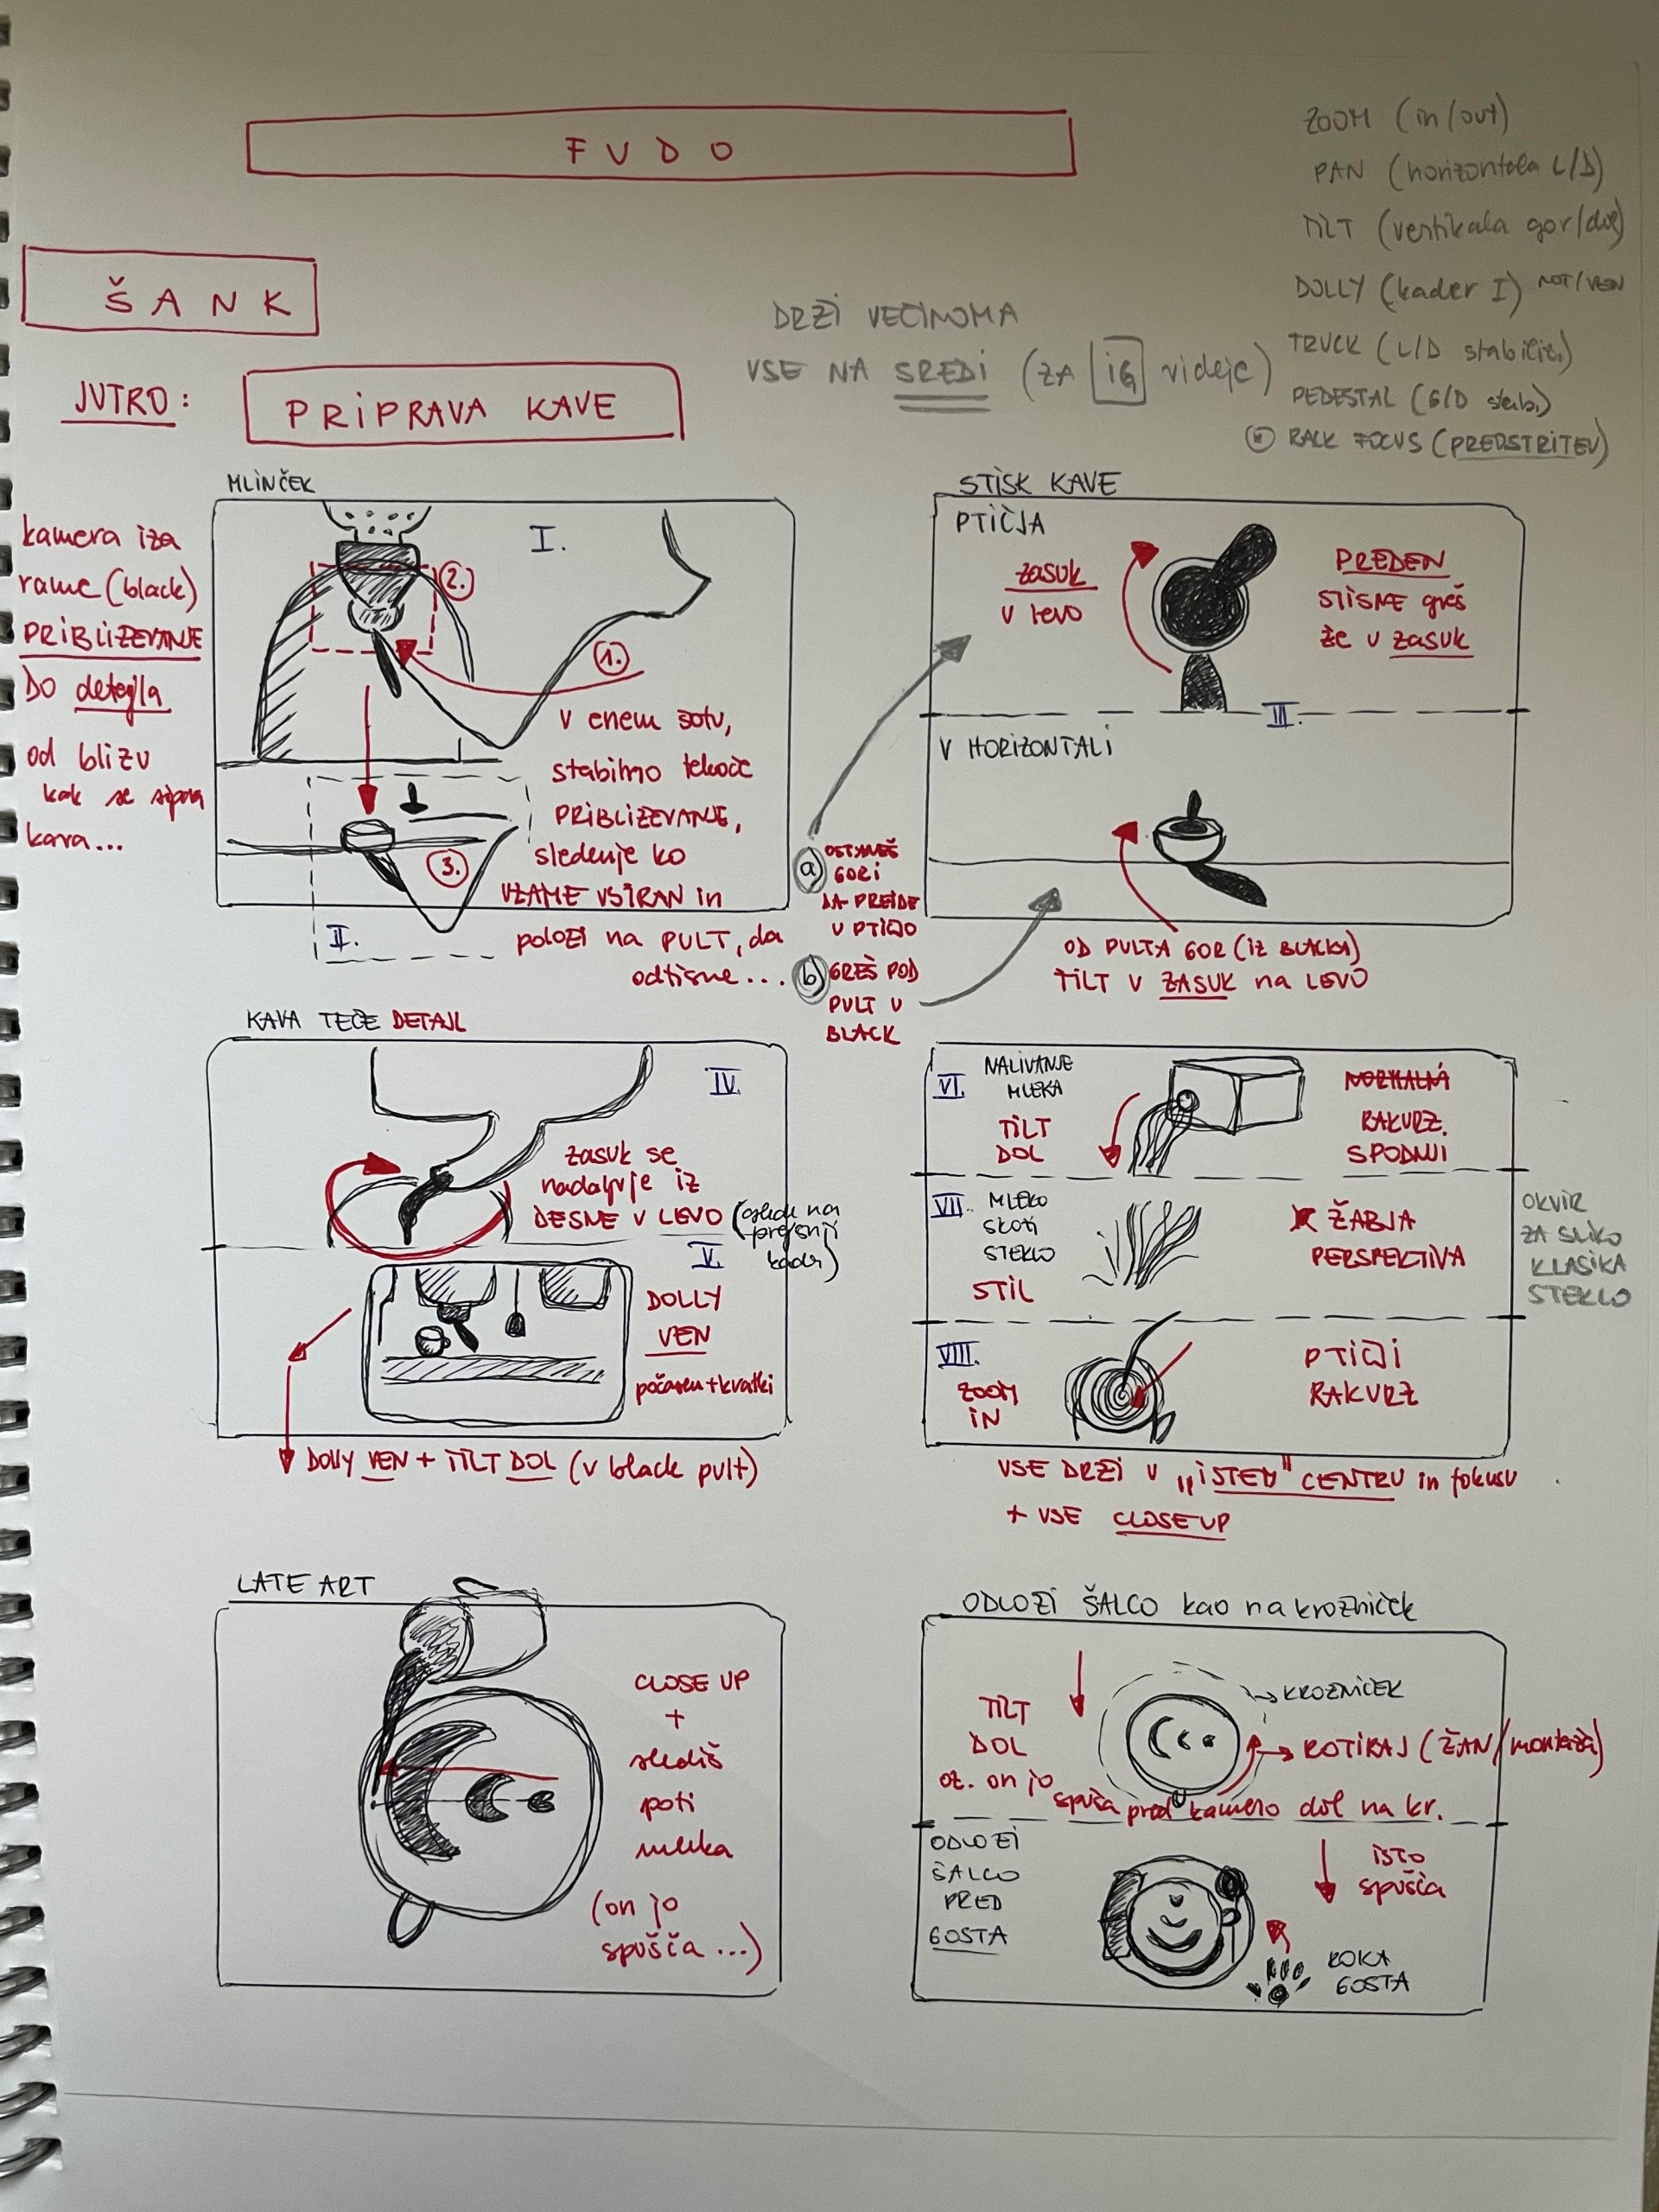 FUDO
ZOOM (in/out)
PAN (horizontala L/D)
TILT (vertikala gor/dol)
DOLLY (kader I) NOT/VEN
TRUCK (L/D stabiliz.)
PEDESTAL (G/D stab.)
RACK FOCUS (PREOSTRITEV)
ŠANK
DRŽI VEČINOMA
VSE NA SREDI (ZA IG videje)
JUTRO:
PRIPRAVA KAVE
MLINČEK
kamera iza
rame (black)
PRIBLIŽEVANJE
DO detajla
od blizu
kak se sipa
kava...
I.
2.
1.
3.
II.
V enem šotu,
stabilno tekoče
PRIBLIŽEVANJE,
sledenje ko
VZAME VSTRAN in
položi na PULT, da
odtisne...
a) OSTANEŠ
GORI
DA PREIDE
V PTIČJO
b) GREŠ POD
PULT V
BLACK
STISK KAVE
PTIČJA
zasuk
v levo
PREDEN
STISNE greš
že v zasuk
III.
V HORIZONTALI
OD PULTA GOR (iz BLACKA)
TILT V ZASUK na LEVO
KAVA TEČE DETAJL
IV.
zasuk se
nadaljuje iz
DESNE V LEVO (glede na
prejšnji
kader)
V.
DOLLY
VEN
počasen + kratki
DOLLY VEN + TILT DOL (v black pult)
VI. NALIVANJE
MLEKA
TILT
DOL
NORMALNA
RAKURZ.
SPODNJI
VII. MLEKO
SKOZI
STEKLO
STIL
ŽABJA
PERSPEKTIVA
OKVIR
ZA SLIKO
KLASIKA
STEKLO
VIII.
ZOOM
IN
PTIČJI
RAKURZ
VSE DRŽI V „ISTEM" CENTRU in fokusu
+ VSE CLOSE UP
LATE ART
CLOSE UP
+
slediš
poti
mleka
(on jo
spušča ...)
ODLOŽI ŠALCO kao na krožniček
TILT
DOL
oz. on jo
spušča pred kamero dol na kr.
KROŽNIČEK
ROTIRAJ (ŽAN/montaža)
ODLOŽI
ŠALCO
PRED
GOSTA
isto
spušča
ROKA
GOSTA